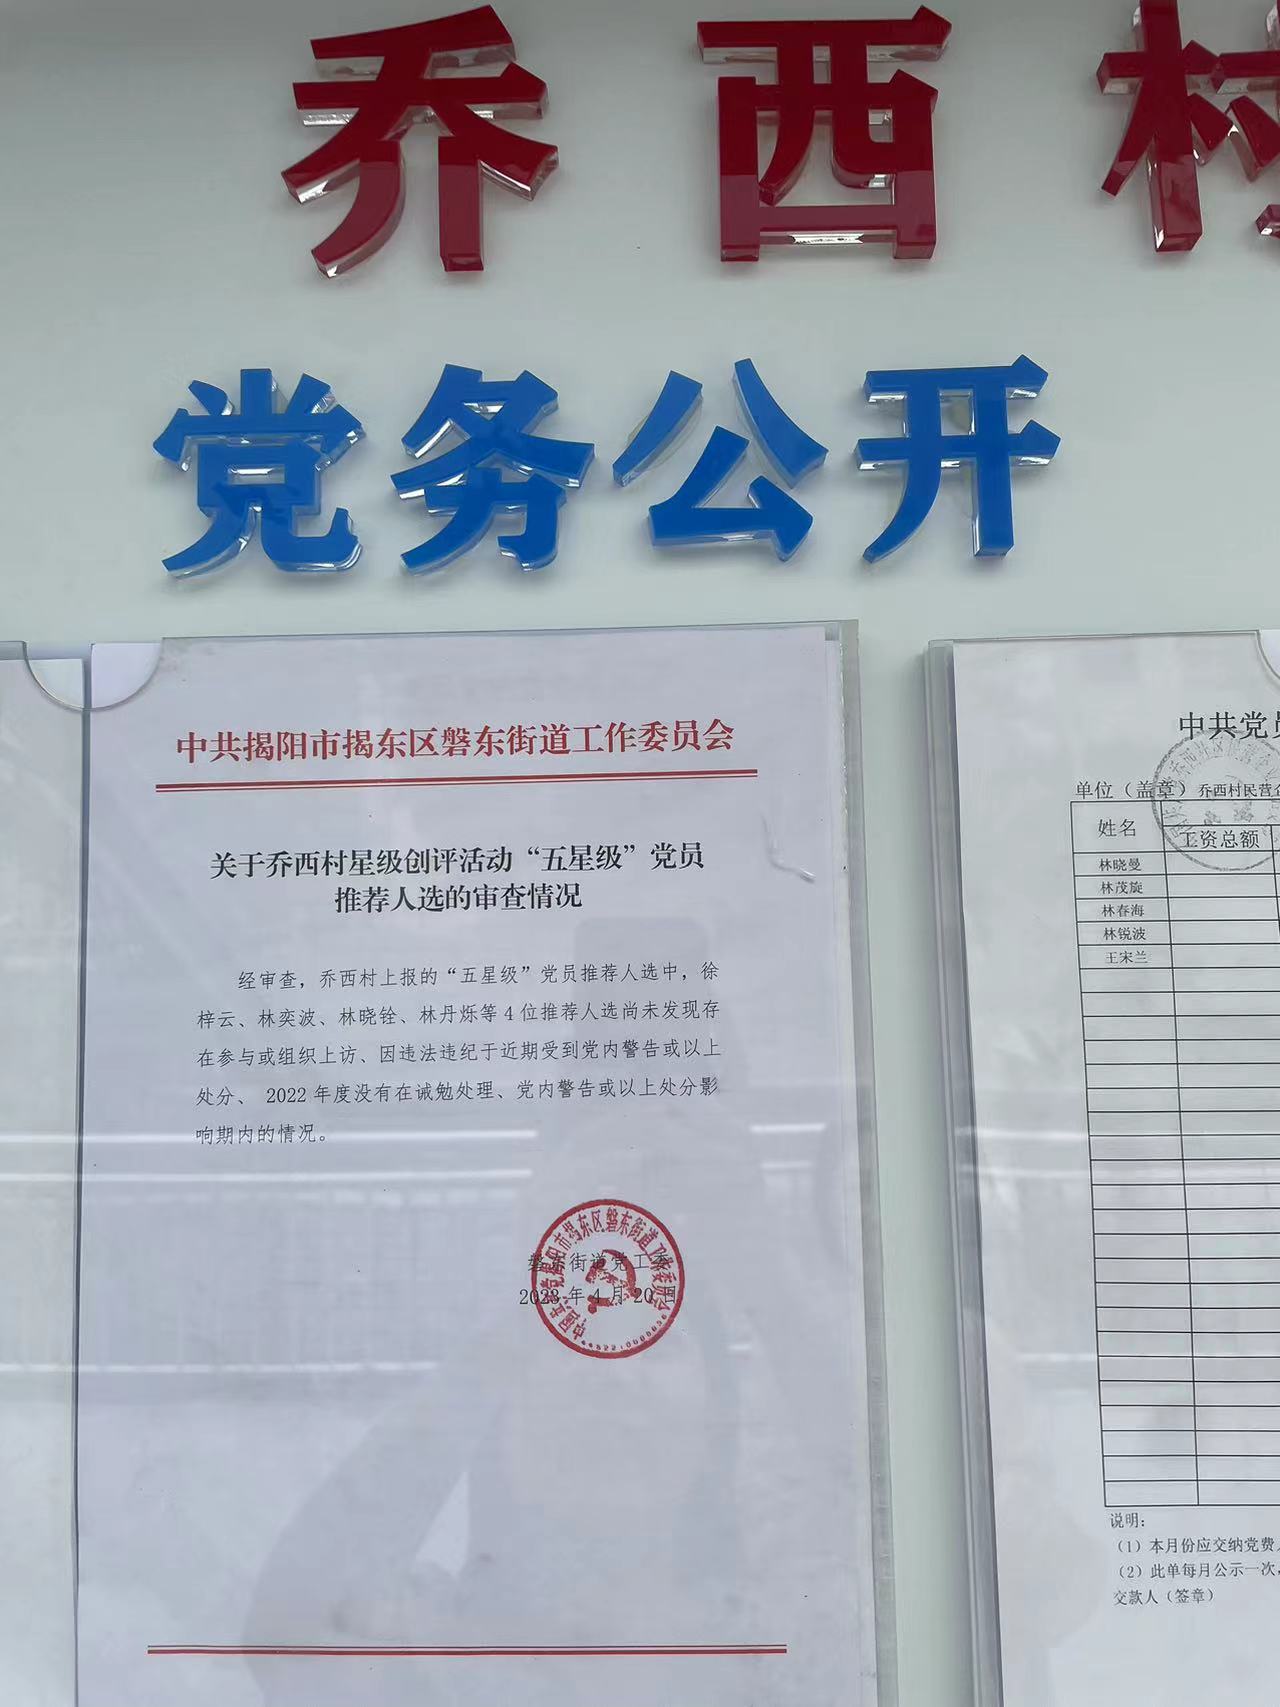 乔西村
党务公开
中共揭阳市揭东区磐东街道工作委员会
关于乔西村星级创评活动“五星级”党员
推荐人选的审查情况
经审查，乔西村上报的“五星级”党员推荐人选中，徐
梓云、林奕波、林晓铨、林丹烁等4位推荐人选尚未发现存
在参与或组织上访、因违法违纪于近期受到党内警告或以上
处分、 2022年度没有在诫勉处理、党内警告或以上处分影
响期内的情况。
磐东街道党工委
2023年4月20日
中共党员
单位（盖章）乔西村民营企
姓名
工资总额
林晓曼
林茂旋
林春海
林锐波
王宋兰
说明：
（1）本月份应交纳党费
（2）此单每月公示一次，
交款人（签章）